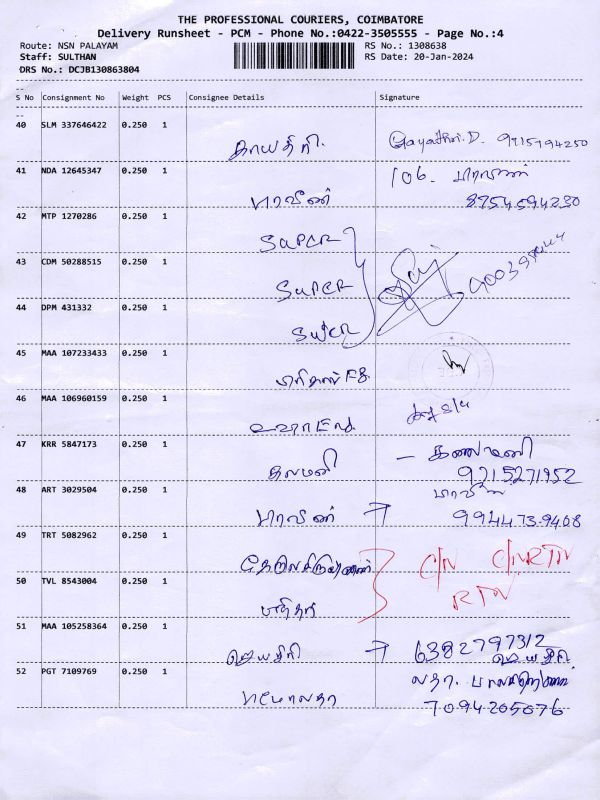 THE PROFESSIONAL COURIERS, COIMBATORE
Delivery Runsheet - PCM - Phone No.:0422-3505555 - Page No.:4
Route: NSN PALAYAM RS No.: 1308638
Staff: SULTHAN RS Date: 20-Jan-2024
DRS No.: DCJB130863804
S No Consignment No Weight PCS Consignee Details Signature
40 SLM 337646422 0.250 1
காயத்திரி. Gayathri.D. 9715794250
41 NDA 12645347 0.250 1 106. பிரவீன்
பிரவீண் 8754594230
42 MTP 1270286 0.250 1
SUPER
43 CDM 50288515 0.250 1
SUPER
44 DPM 431332 0.250 1
SUPER
45 MAA 107233433 0.250 1
46 MAA 106960159 0.250 1
47 KRR 5847173 0.250 1 – கலாமணி
கலாமணி 9715271952
48 ART 3029504 0.250 1 பிரவீன்
பிரவீண் → 9944739408
49 TRT 5082962 0.250 1
C/N C/N RTN
50 TVL 8543004 0.250 1 RTN
51 MAA 105258364 0.250 1
ஜெயசிரி → 6382797312
52 PGT 7109769 0.250 1 ஜெயசிரி
7094205076